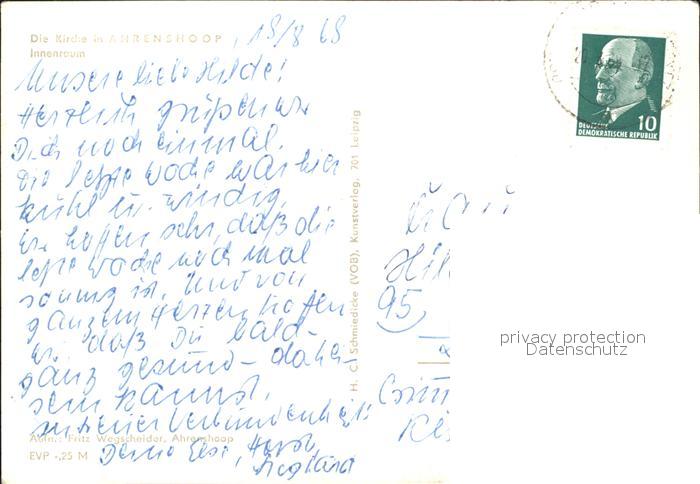 Die Kirche in AHRENSHOOP, 18/8 68
Innenraum
Unsere liebe Hilde!
Herzlich grüßen wir
Dich noch einmal.
Die letzte Woche war hier
kühl u. windig,
wir hoffen sehr, daß die
letzte Woche noch mal
sonnig ist. Und von
ganzem Herzen hoffen
wir, daß Du bald
ganz gesund - daheim
sein kannst.
In treuer Verbundenheit
Deine Else, Horst,
Aufn.: Fritz Wegscheider, Ahrenshoop
EVP -,25 M
H. C. Schmiedicke (VOB), Kunstverlag, 701 Leipzig
DEUTSCHE
DEMOKRATISCHE REPUBLIK 10
Frau
Hil
95
privacy protection
Datenschutz